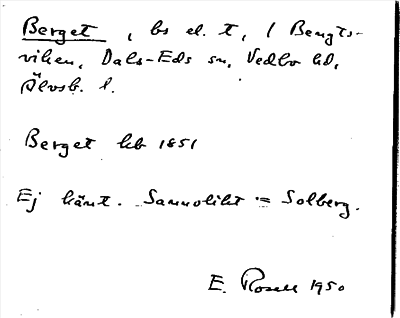 Berget, bs el. t, / Bengts-
viken, Dals-Eds sn, Vedbo hd,
Älvsb. l.
Berget hb 1851
Ej känt. Sannolikt = Solberg.
E. Rosell 1950